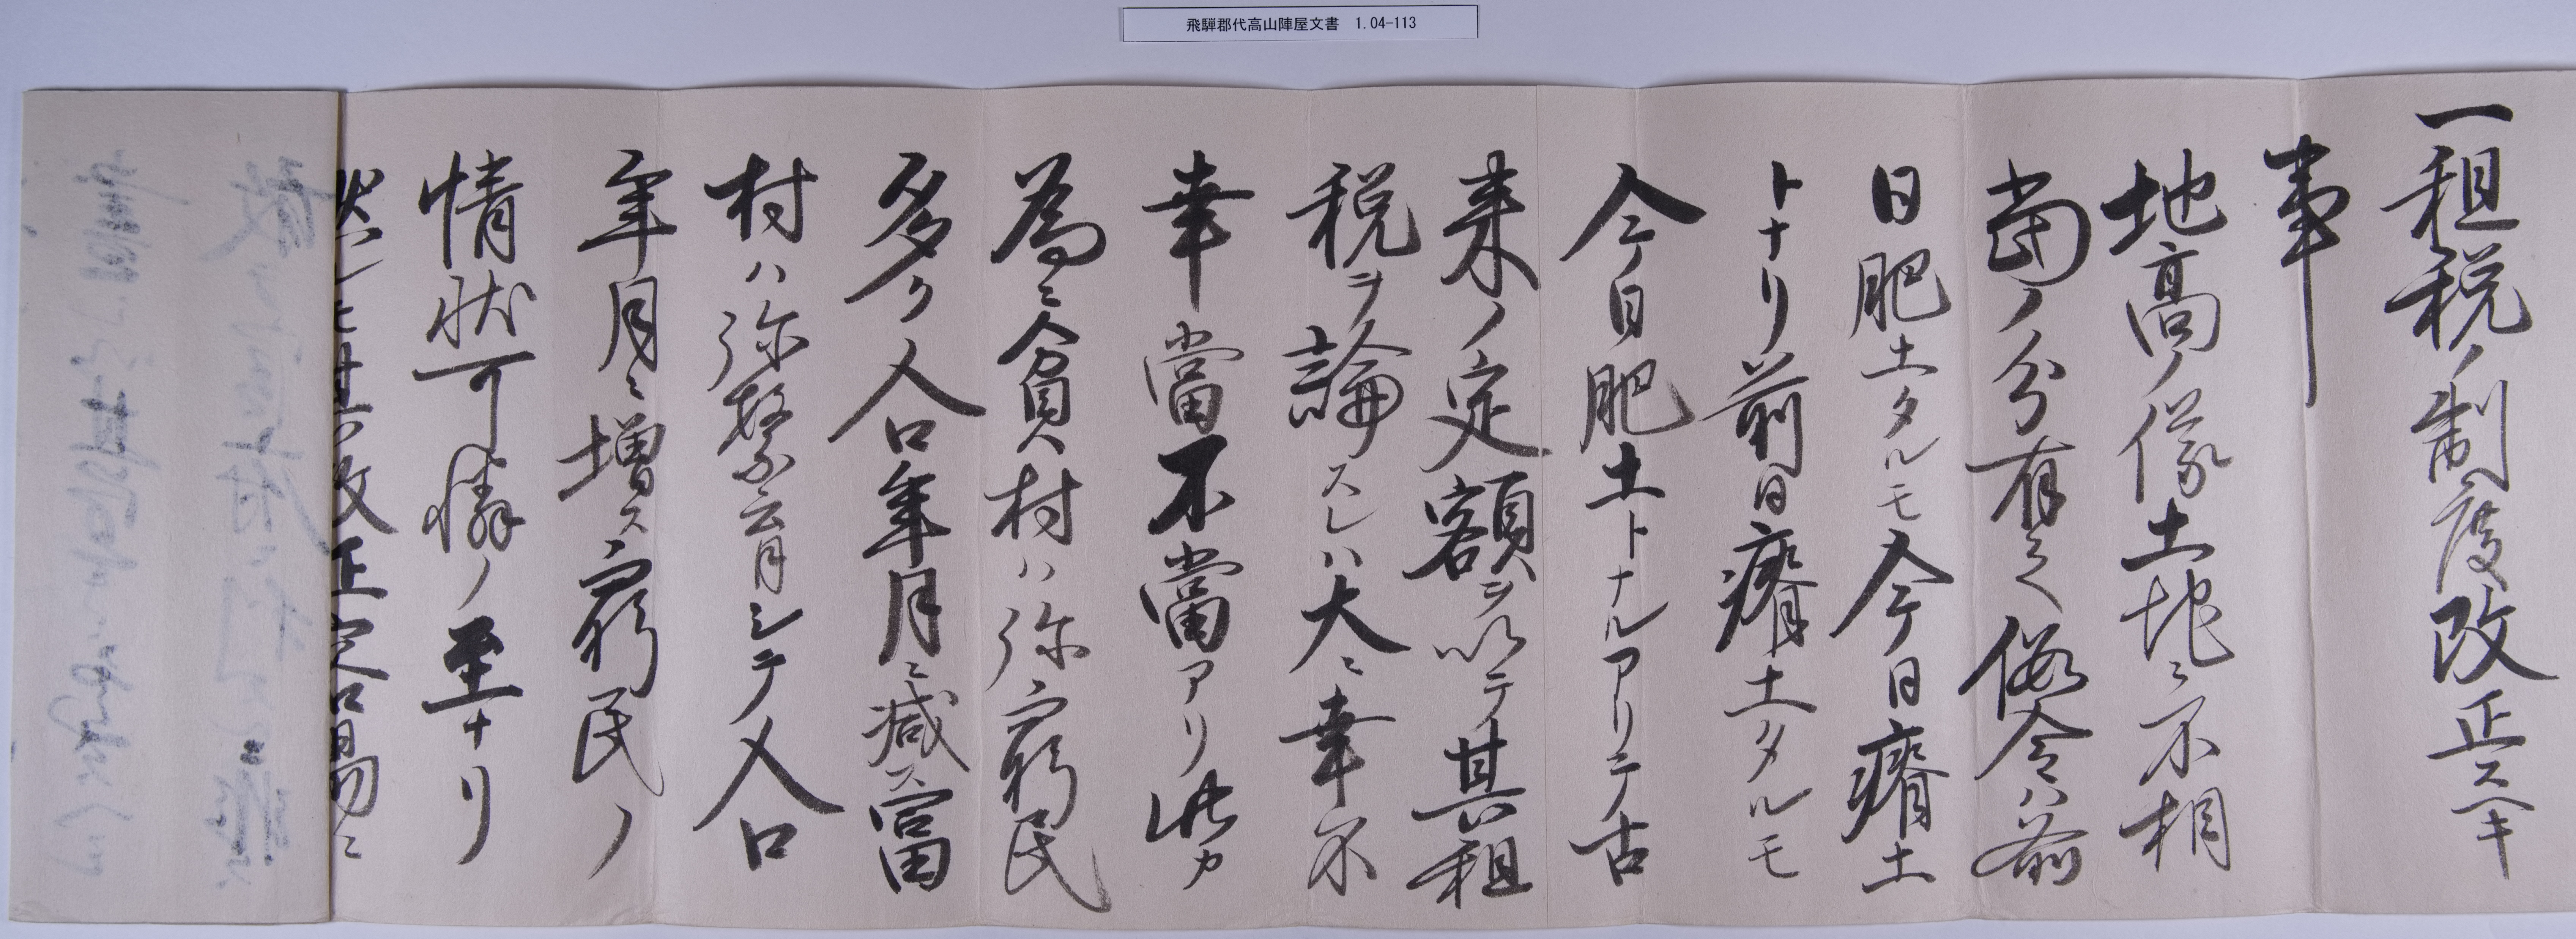 飛騨郡代高山陣屋文書 1.04-113
一租税ノ制度改正スヘキ
事
地高ノ儀土地ニ不相
當ノ分有之仮令ハ前
日肥土タルモ今日瘠土
トナリ前日瘠土タルモ
今日肥土トナルアリテ古
来ノ定額ヲ以テ其租
税ヲ論スレハ大ニ幸不
幸當不當アリ此カ
為ニ貧村ハ弥窮民
多ク人口年月ニ減ス富
村ハ弥繁云月シテ人口
年月ニ増ス窮民ノ
情状可憐ノ至ナリ
然レ𪜈
改正容易ニ